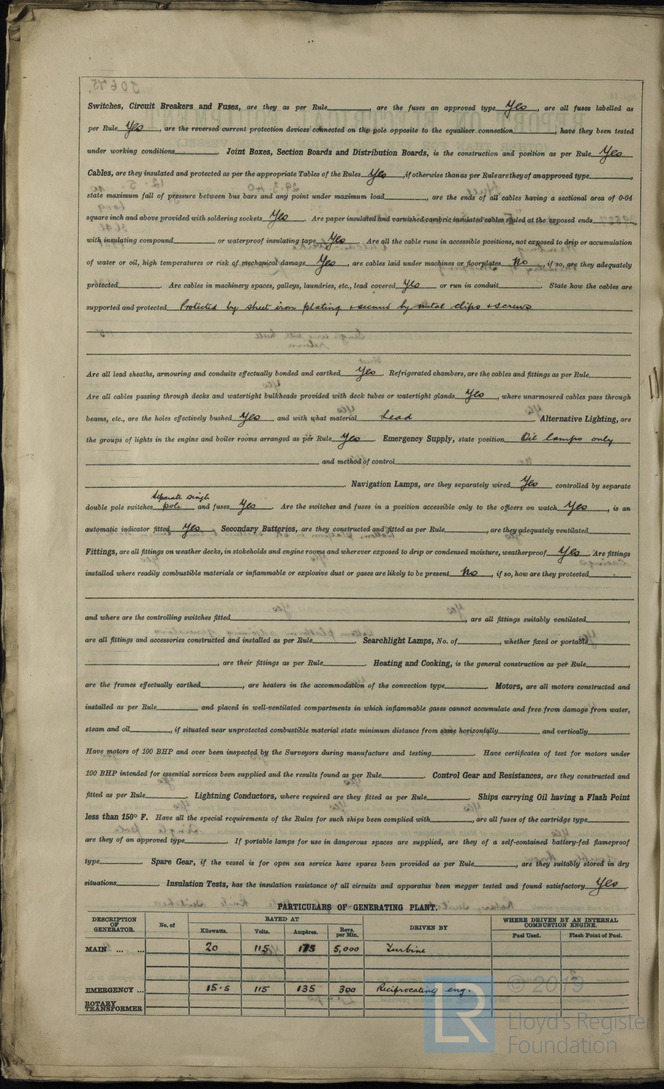 Switches, Circuit Breakers and Fuses, are they as per Rule , are the fuses an approved type Yes , are all fuses labelled as
per Rule Yes , are the reversed current protection devices connected on the pole opposite to the equaliser connection , have they been tested
under working conditions . Joint Boxes, Section Boards and Distribution Boards, is the construction and position as per Rule Yes
Cables, are they insulated and protected as per the appropriate Tables of the Rules Yes , if otherwise than as per Rule are they of an approved type ,
state maximum fall of pressure between bus bars and any point under maximum load , are the ends of all cables having a sectional area of 0·04
square inch and above provided with soldering sockets Yes . Are paper insulated and varnished cambric insulated cables sealed at the exposed ends
with insulating compound or waterproof insulating tape Yes . Are all the cable runs in accessible positions, not exposed to drip or accumulation
of water or oil, high temperatures or risk of mechanical damage Yes , are cables laid under machines or floorplates No , if so, are they adequately
protected . Are cables in machinery spaces, galleys, laundries, etc., lead covered Yes or run in conduit . State how the cables are
supported and protected Protected by sheet iron plating & secured by metal clips & screws
Are all lead sheaths, armouring and conduits effectually bonded and earthed Yes . Refrigerated chambers, are the cables and fittings as per Rule
Are all cables passing through decks and watertight bulkheads provided with deck tubes or watertight glands Yes , where unarmoured cables pass through
beams, etc., are the holes effectively bushed Yes and with what material Lead . Alternative Lighting, are
the groups of lights in the engine and boiler rooms arranged as per Rule Yes . Emergency Supply, state position Oil lamps only
and method of control
. Navigation Lamps, are they separately wired Yes controlled by separate
Separate single
double pole switches pole and fuses Yes . Are the switches and fuses in a position accessible only to the officers on watch Yes , is an
automatic indicator fitted Yes . Secondary Batteries, are they constructed and fitted as per Rule , are they adequately ventilated
Fittings, are all fittings on weather decks, in stokeholds and engine rooms and wherever exposed to drip or condensed moisture, weatherproof Yes . Are fittings
installed where readily combustible materials or inflammable or explosive dust or gases are likely to be present No , if so, how are they protected
and where are the controlling switches fitted , are all fittings suitably ventilated ,
are all fittings and accessories constructed and installed as per Rule . Searchlight Lamps, No. of , whether fixed or portable
, are their fittings as per Rule . Heating and Cooking, is the general construction as per Rule ,
are the frames effectually earthed , are heaters in the accommodation of the convection type . Motors, are all motors constructed and
installed as per Rule and placed in well-ventilated compartments in which inflammable gases cannot accumulate and free from damage from water,
steam and oil , if situated near unprotected combustible material state minimum distance from same horizontally and vertically
Have motors of 100 BHP and over been inspected by the Surveyors during manufacture and testing . Have certificates of test for motors under
100 BHP intended for essential services been supplied and the results found as per Rule . Control Gear and Resistances, are they constructed and
fitted as per Rule . Lightning Conductors, where required are they fitted as per Rule . Ships carrying Oil having a Flash Point
less than 150° F. Have all the special requirements of the Rules for such ships been complied with , are all fuses of the cartridge type
are they of an approved type . If portable lamps for use in dangerous spaces are supplied, are they of a self-contained battery-fed flameproof
type . Spare Gear, if the vessel is for open sea service have spares been provided as per Rule , are they suitably stored in dry
situations . Insulation Tests, has the insulation resistance of all circuits and apparatus been megger tested and found satisfactory Yes
PARTICULARS OF GENERATING PLANT.
DESCRIPTION OF GENERATOR. No. of RATED AT DRIVEN BY WHERE DRIVEN BY AN INTERNAL COMBUSTION ENGINE.
Kilowatts. Volts. Ampères. Revs. per Min. Fuel Used. Flash Point of Fuel.
MAIN ... ... 20 115 175 5,000 Turbine
EMERGENCY ... 15·5 115 135 300 Reciprocating eng.
ROTARY TRANSFORMER
© 2019
LR
Lloyd's Register
Foundation